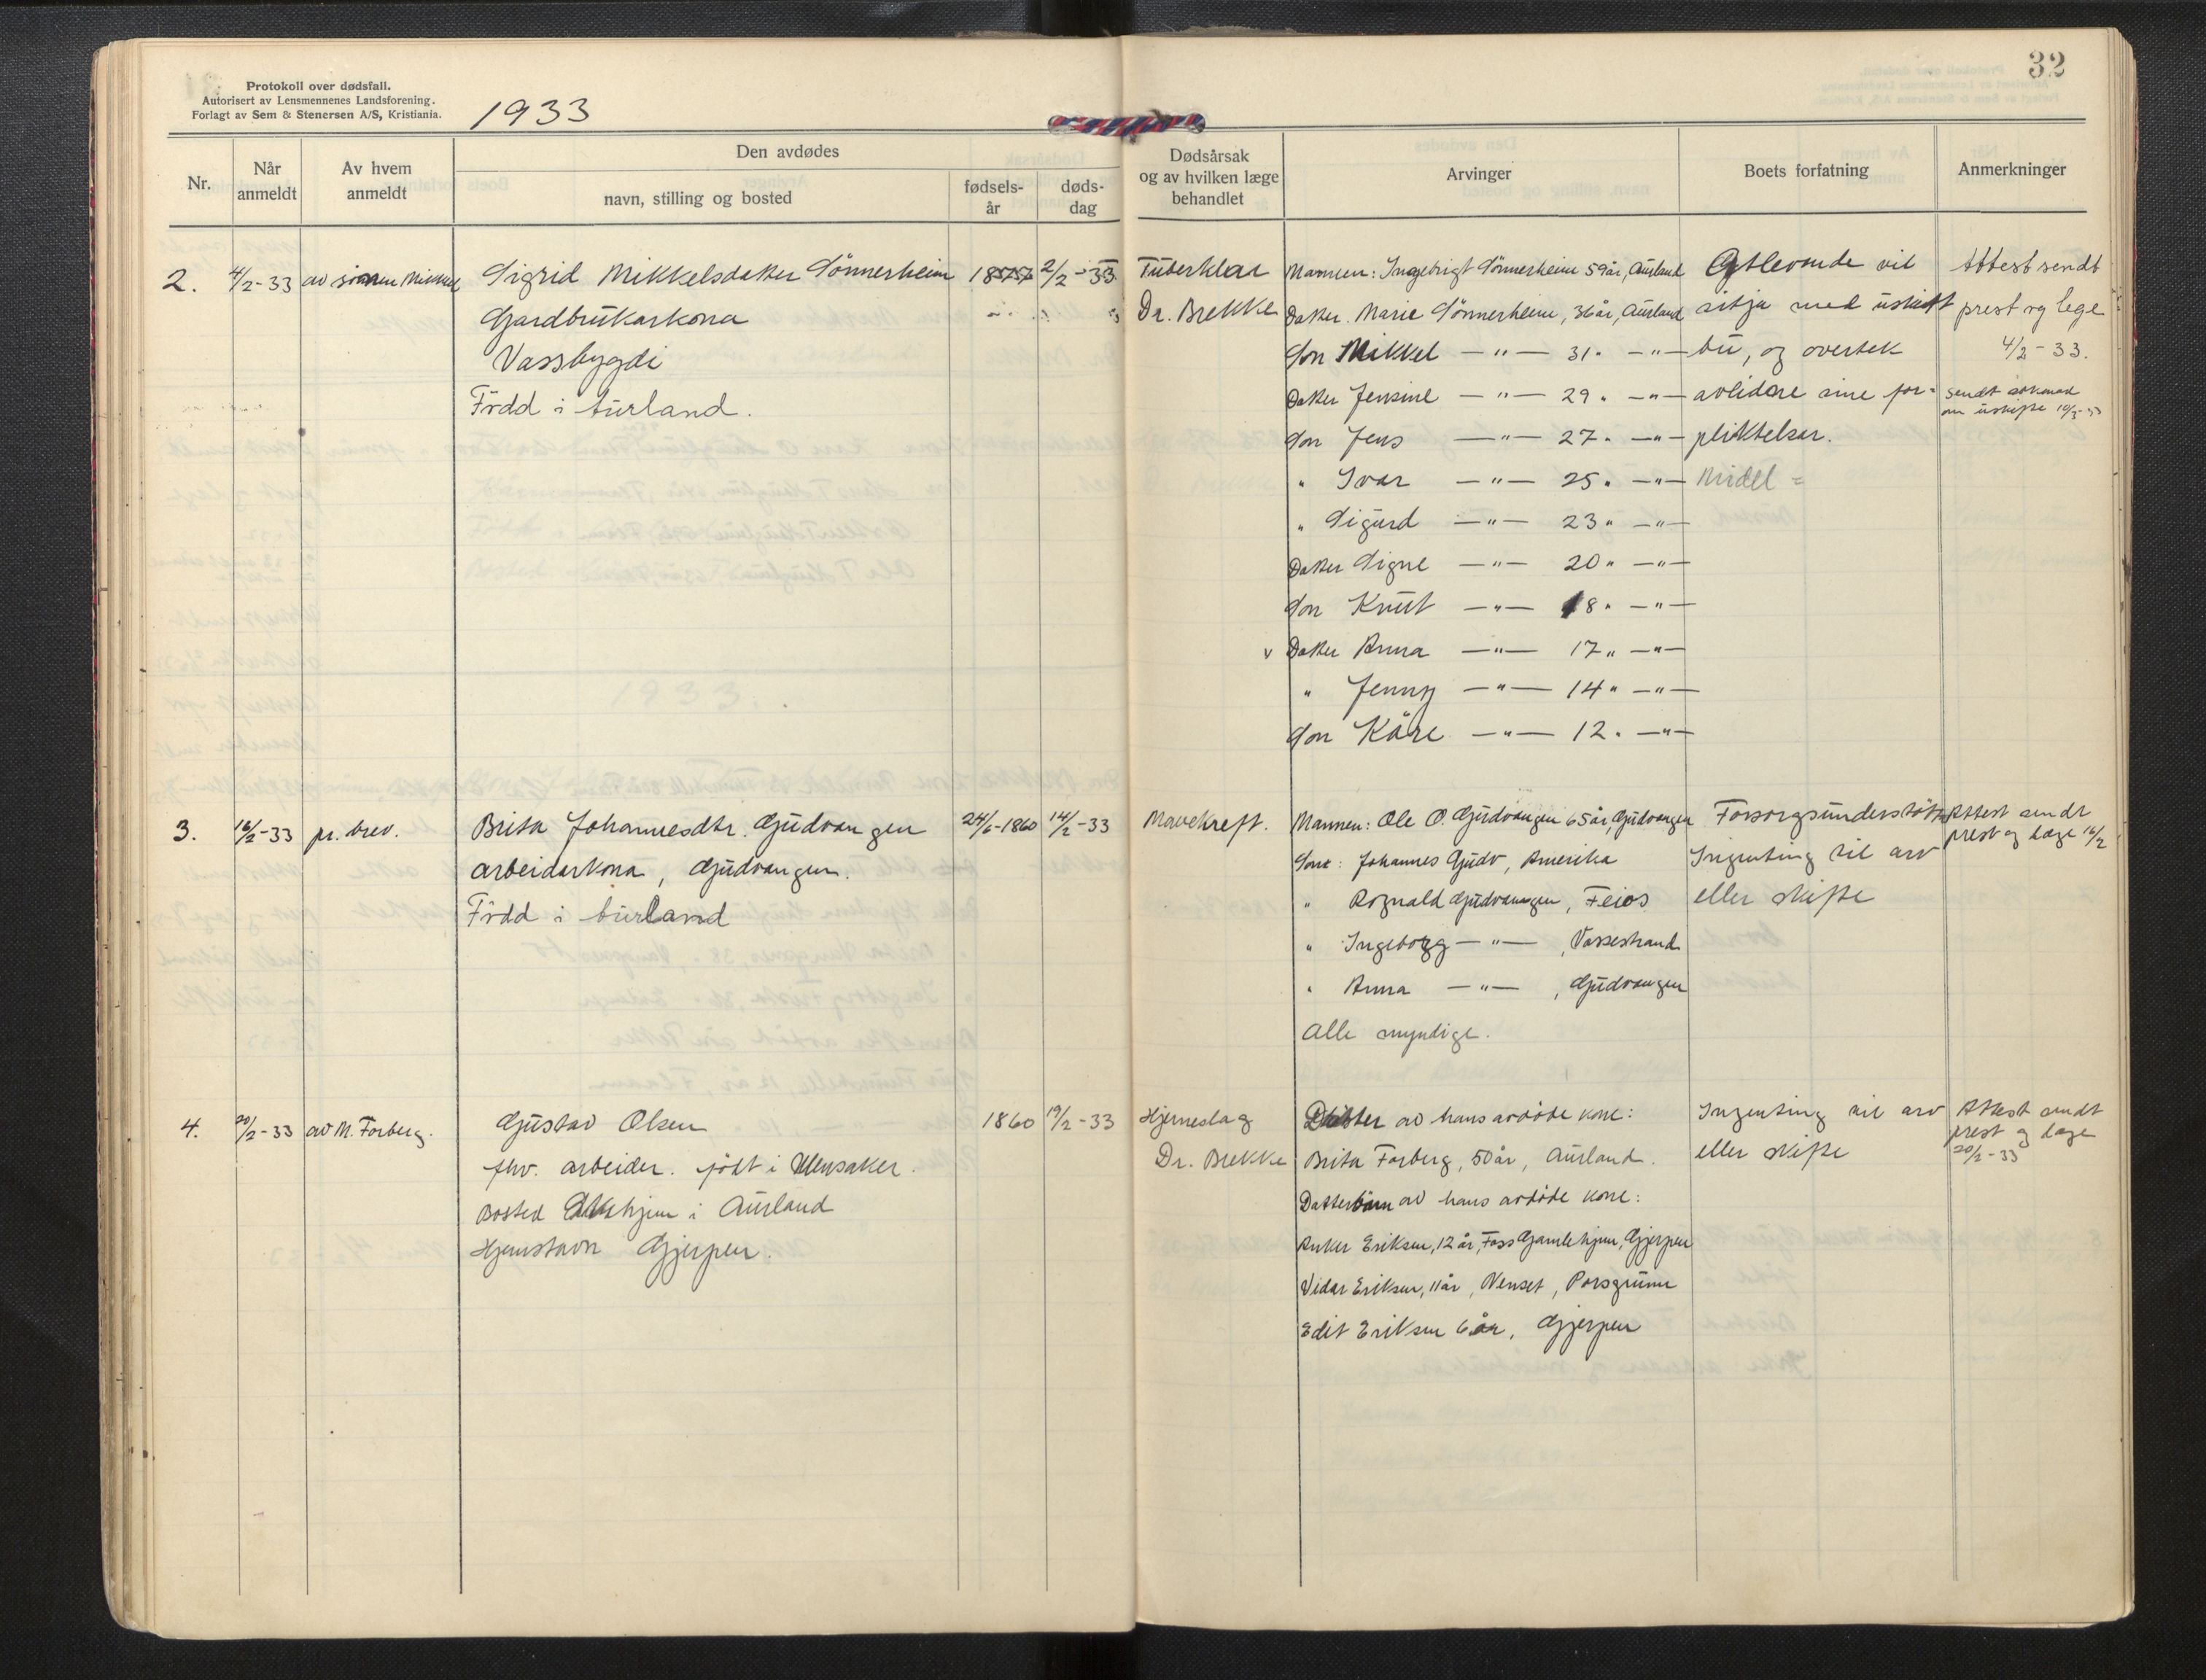 Protokoll over dødsfall.
Autorisert av Lensmennenes Landsforening.
Forlagt av Sem & Stenersen A/S, Kristiania.
1933
32
Nr.
Når anmeldt
Av hvem anmeldt
Den avdødes
navn, stilling og bosted
fødsels-år
døds-dag
Dødsårsak og av hvilken læge behandlet
Arvinger
Boets forfatning
Anmerkninger
2.
4/2-33
av sønnen Mikkel
Sigrid Mikkelsdatter Sönnerheim
Gardbrukarkona
Vassbygdi
Född i Aurland.
2/2-33
Tuberklar
Dr. Brekke
Mannen: Ingebrigt Sönnerheim 59 år, Aurland
Datter. Marie Sönnerheim, 36 år, Aurland
Son Mikkel —"— 31" —"—
Datter Jensine —"— 29" —"—
Son Jens —"— 27" —"—
" Ivar —"— 25" —"—
" Sigurd —"— 23" —"—
Datter Signe —"— 20" —"—
Son Knut —"— 18" —"—
v Datter Anna —"— 17" —"—
" Jenny —"— 14" —"—
Son Kåre —"— 12" —"—
Attlevande vil
sitja med uskift
bu, og overtek
avlidne sine for=
pliktelser.
Midel =
Attest sendt
prest og lege
4/2-33.
sendt søknad
om uskifte 10/3-33
3.
16/2-33
pr. brev.
Brita Johannesdtr. Gudvangen
arbeidarkona, Gudvangen.
Född i Aurland
24/6-1860
14/2-33
Mavekreft.
Mannen: Ole O. Gudvangen 65 år, Gudvangen
Sønn: Johannes Gudv, Amerika
" Rognald Gudvangen, Feios
" Ingeborg —"—, Vassestrand
" Anna —"—, Gudvangen
Alle myndige.
Forsorgsunderstött
Ingenting til arv
eller skifte
Attest sendt
prest og læge 16/2
4.
20/2-33
av M. Forberg.
Gustav Olsen
fhv. arbeider. født i Ullensaker.
Bosted Aldershjem i Aurland
Hjemstavn Gjerpen.
1860
19/2-33
Hjerneslag
Dr. Brekke
Datter av hans avdøde kone:
Brita Forberg, 50 år, Aurland.
Datterbarn av hans avdøde kone:
Anker Eriksen, 12 år, Foss Gamlehjem, Gjerpen
Vidar Eriksen, 11 år, Venset, Porsgrunn
Edit Eriksen 6 år, Gjerpen
Ingenting til arv
eller skifte
Attest sendt
prest og læge
20/2-33